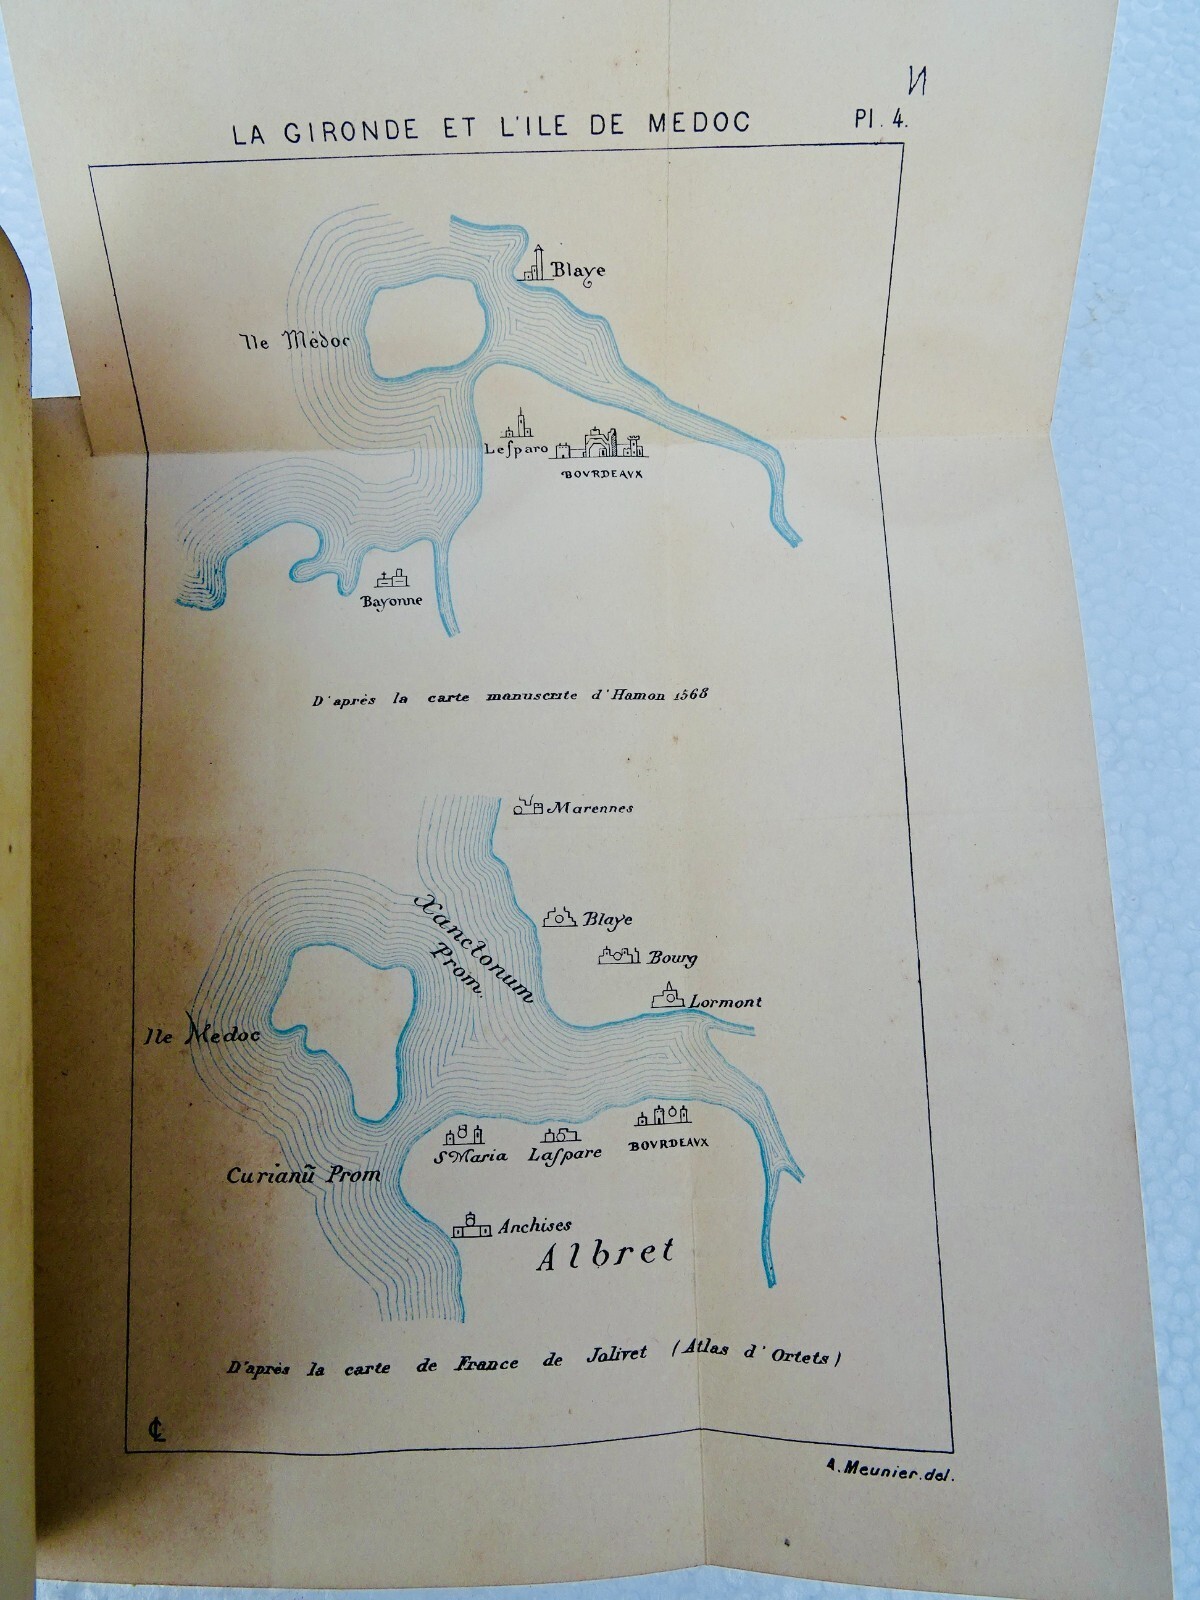 LA GIRONDE ET L'ILE DE MEDOC
Pl. 4.
Blaye
Ile Mèdoc
Leſparo
BOVRDEAVX
Bayonne
D'après la carte manuscrite d'Hamon 1568
Marennes
Xanctonum
Prom.
Blaye
Bourg
Lormont
Ile Medoc
S Maria
Laſpare
BOVRDEAVX
Curianũ Prom
Anchises
Albret
D'après la carte de France de Jolivet (Atlas d'Ortets)
A. Meunier. del.